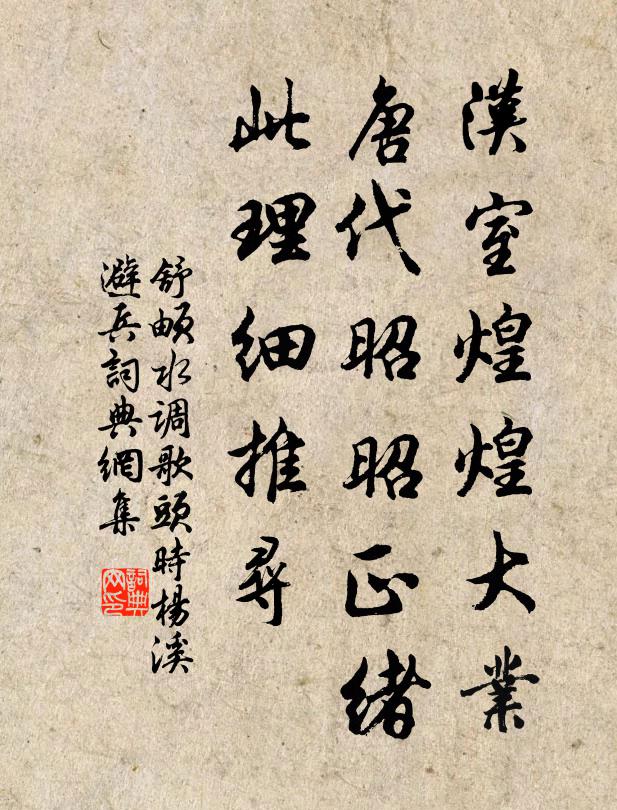 漢室煌煌大業
唐代昭昭正緒
此理細推尋
舒頔水调歌頭時楊溪
避兵詞典網集
詞典
网印